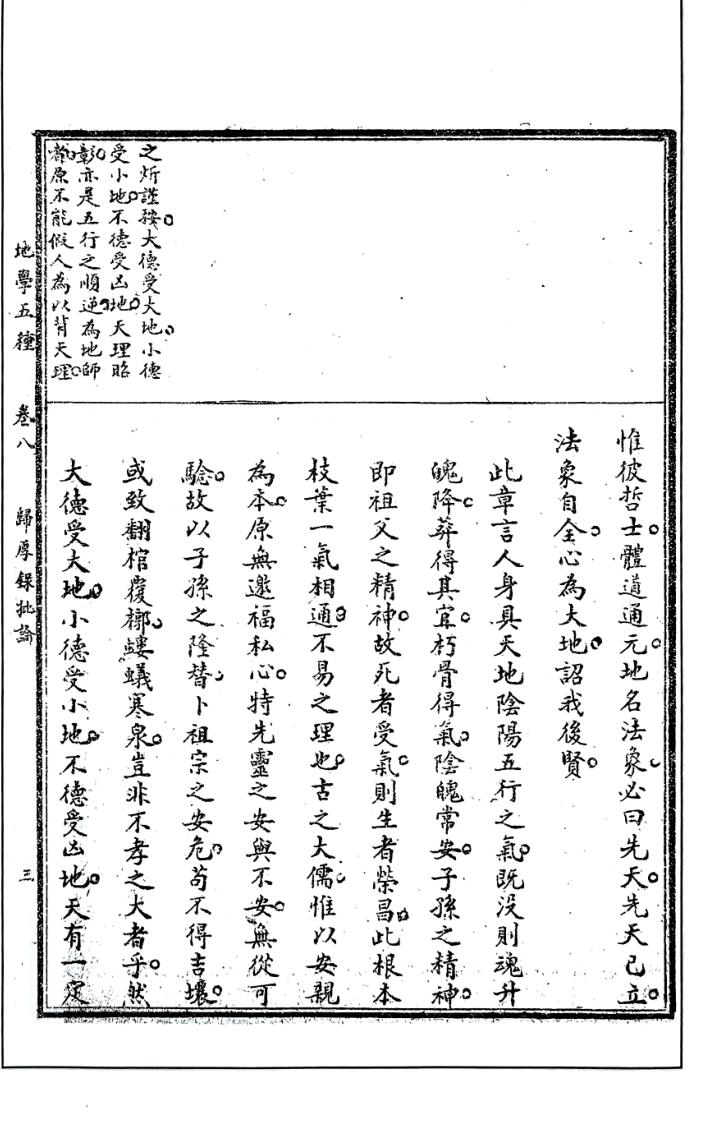 之炘謹按大德受大地小德
受小地不德受凶地天理昭
彰亦是五行之順逆為地師
者原不能假人為以背天理
惟彼哲士體道通元地名法象必曰先天先天已立
法象自全心為大地詔我後賢
此章言人身具天地陰陽五行之氣既没則魂升
魄降葬得其宜朽骨得氣陰魄常安子孫之精神
即祖父之精神故死者受氣則生者榮昌此根本
枝葉一氣相通不易之理也古之大儒惟以安親
為本原無邀福私心特先靈之安與不安無從可
驗故以子孫之隆替卜祖宗之安危苟不得吉壤
或致翻棺覆槨螻蟻寒泉豈非不孝之大者乎然
大德受大地小德受小地不德受凶地天有一定
地學五種 卷八 歸厚錄批論 三